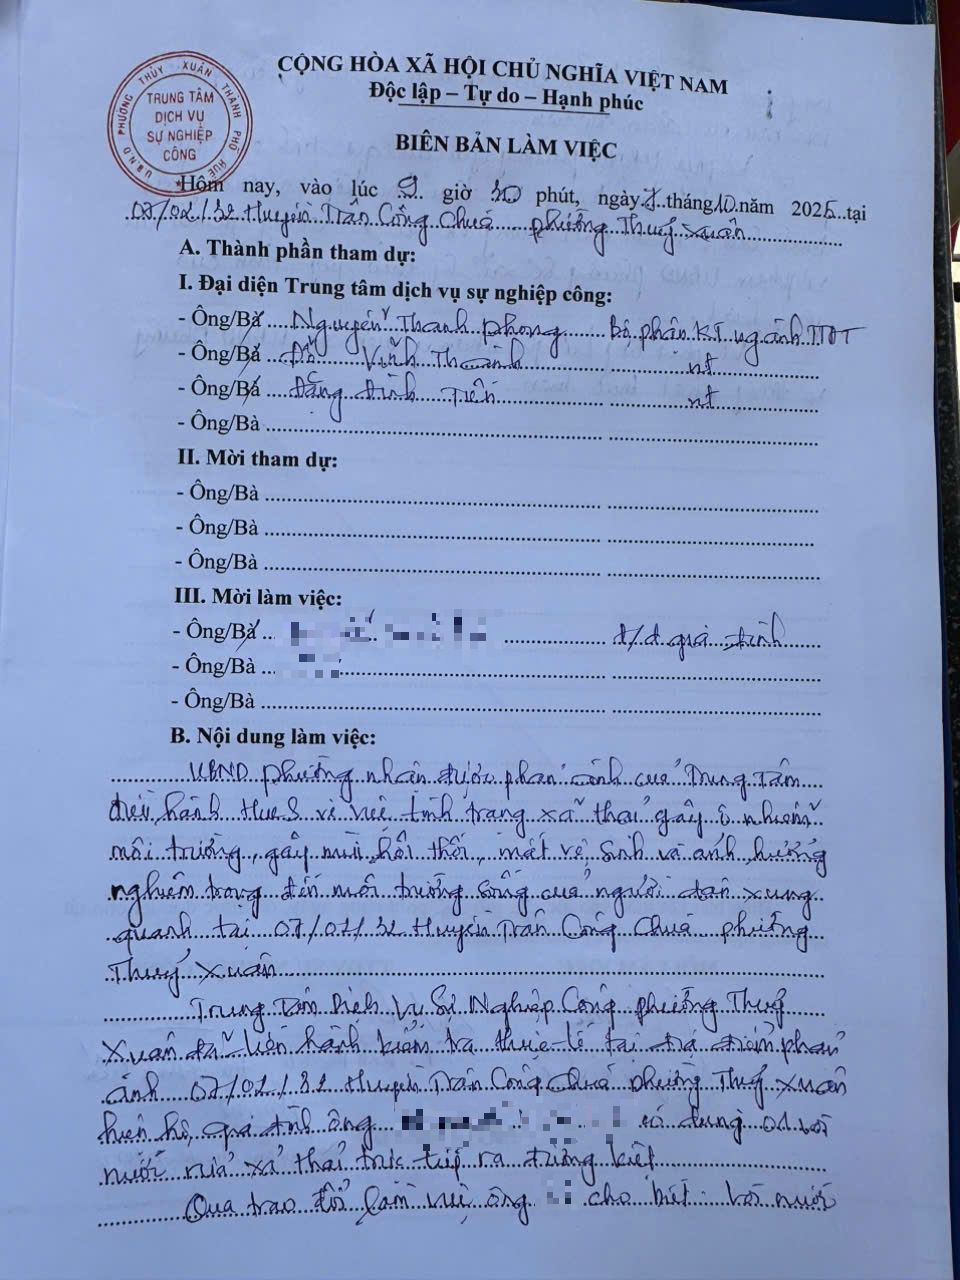 CỘNG HÒA XÃ HỘI CHỦ NGHĨA VIỆT NAM
Độc lập – Tự do – Hạnh phúc
U.B.N.D PHƯỜNG THỦY XUÂN THÀNH PHỐ HUẾ
TRUNG TÂM
DỊCH VỤ
SỰ NGHIỆP
CÔNG
BIÊN BẢN LÀM VIỆC
Hôm nay, vào lúc 9 giờ 30 phút, ngày 7 tháng 10 năm 2025 tại
07/02/32 Huyền Trân Công Chúa phường Thuỷ Xuân
A. Thành phần tham dự:
I. Đại diện Trung tâm dịch vụ sự nghiệp công:
- Ông/Bà Nguyễn Thanh Phong Bộ phận KT ngành TTĐT
- Ông/Bà Đỗ Vĩnh Thành nt
- Ông/Bà Đặng Đình Tiến nt
- Ông/Bà
II. Mời tham dự:
- Ông/Bà
- Ông/Bà
- Ông/Bà
III. Mời làm việc:
- Ông/Bà đ/d gia đình
- Ông/Bà
- Ông/Bà
B. Nội dung làm việc:
UBND phường nhận được phản ánh của Trung Tâm
điều hành HueS về việc tình trạng xã thải gây ô nhiễm
môi trường, gây mùi hôi thối, mất vệ sinh và ảnh hưởng
nghiêm trọng đến môi trường sống của người dân xung
quanh tại 07/02/32 Huyền Trân Công Chúa phường
Thuỷ Xuân
Trung Tâm Dịch Vụ Sự Nghiệp Công phường Thuỷ
Xuân đã tiến hành kiểm tra thực tế tại địa điểm phản
ánh 07/02/32 Huyền Trân Công Chúa phường Thuỷ Xuân
hiện hộ gia đình ông có dùng 01 vòi
nước rửa xả thải trực tiếp ra đường kiệt
Qua trao đổi làm việc ông cho biết vòi nước